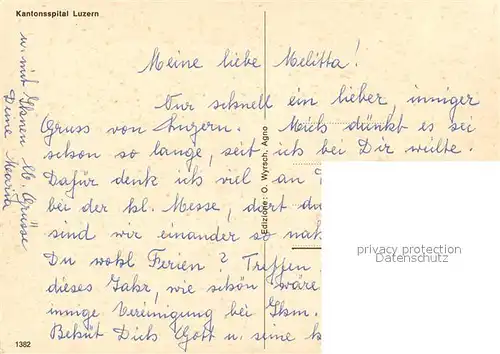 Kantonsspital Luzern
Meine liebe Melitta!
Nur schnell ein lieber, inniger
Gruss von Luzern. Mich dünkt es sei
schon so lange, seit ich bei Dir weilte.
Dafür denk ich viel an
bei der hl. Messe, dort
sind wir einander so
Du wohl Ferien? Treffen
dieses Jahr, wie schön wäre
innige Vereinigung bei Ihm.
Behüt Dich Gott u. seine
u. mit lb. Grüsse
Deine
Edizione: O. Wyrsch, Agno
privacy protection
Datenschutz
1382